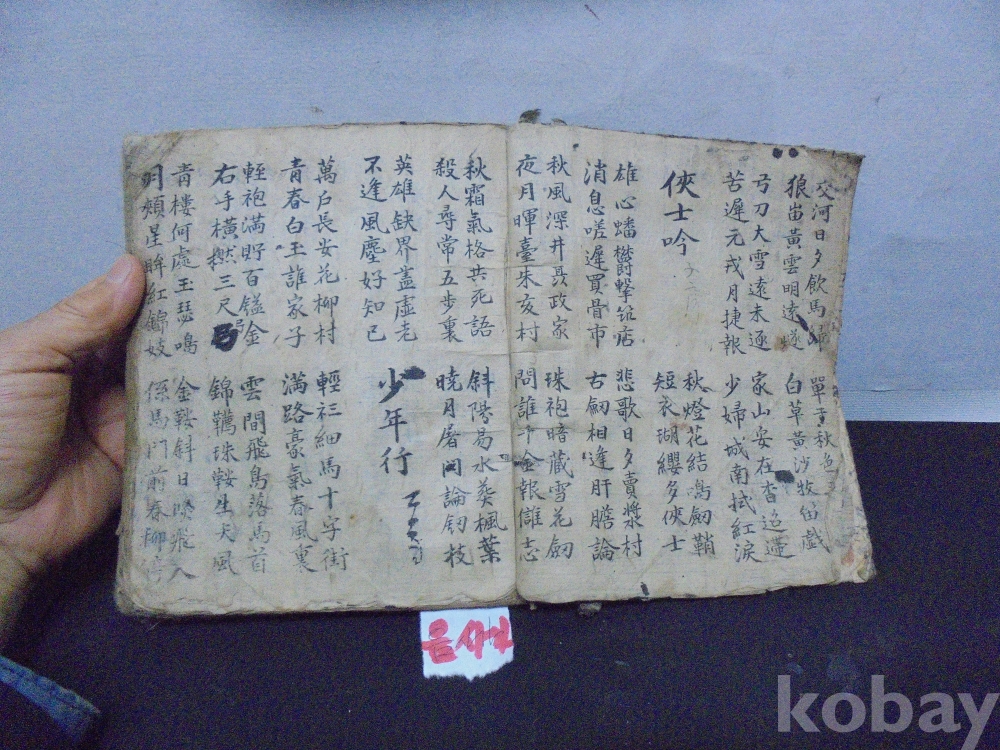 交河日夕飲馬歸 單于秋色三
狼峀黃雲明遠燧 白草黃沙牧笛戱
弓刀大雪遠未逐 家山安在杳迢遞
苦遲元戎月捷報 少婦城南拭紅淚
俠士吟
秋燈花結鳴劒鞘
短衣瑚纓多俠士
雄心蟠欝擊筑店 悲歌日夕賣漿村
消息嗟遲買骨市 古劒相逢肝膽論
秋風深井聶政家 珠袍暗藏雪花劒
夜月暉臺朱亥村 問誰千金報讎志
秋霜氣格共死語 斜陽易水葵楓葉
殺人尋常五步裏 曉月屠門論釰技
英雄缺界盡虛老
不逢風塵好知已
少年行
萬戶長安花柳村 輕衫細馬十字街
青春白玉誰家子 滿路豪氣春風裏
輕袍滿貯百鎰金 雲間飛鳥落馬首
右手橫撚三尺弓 錦韉珠鞍生大風
青樓何處玉瑟鳴 金鞍斜日喚飛入
明頰星眸紅錦妓 係馬門前春柳停
kobay